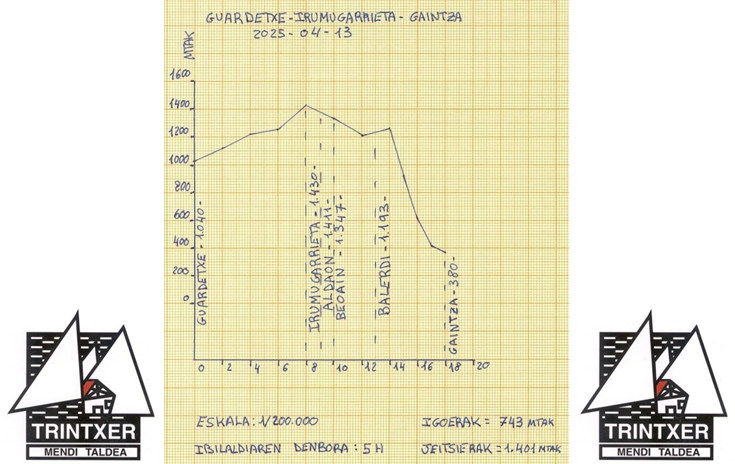 GUARDETXE-IRUMUGARRIETA-GAINTZA
2025-04-13
MTAK
1600
1400
1200
1000
800
600
400
200
0
GUARDETXE-1.040-
IRUMUGARRIETA-1.430-
ALDAON-1.411-
BEOAIN-1.347-
BALERDI-1.193-
GAINTZA-380-
0 2 4 6 8 10 12 14 16 18 20
ESKALA: 1/200.000
IGOERAK = 743 MTAK
IBILALDIAREN DENBORA: 5H
JEITSIERAK = 1.401 MTAK
TRINTXER
MENDI TALDEA
TRINTXER
MENDI TALDEA